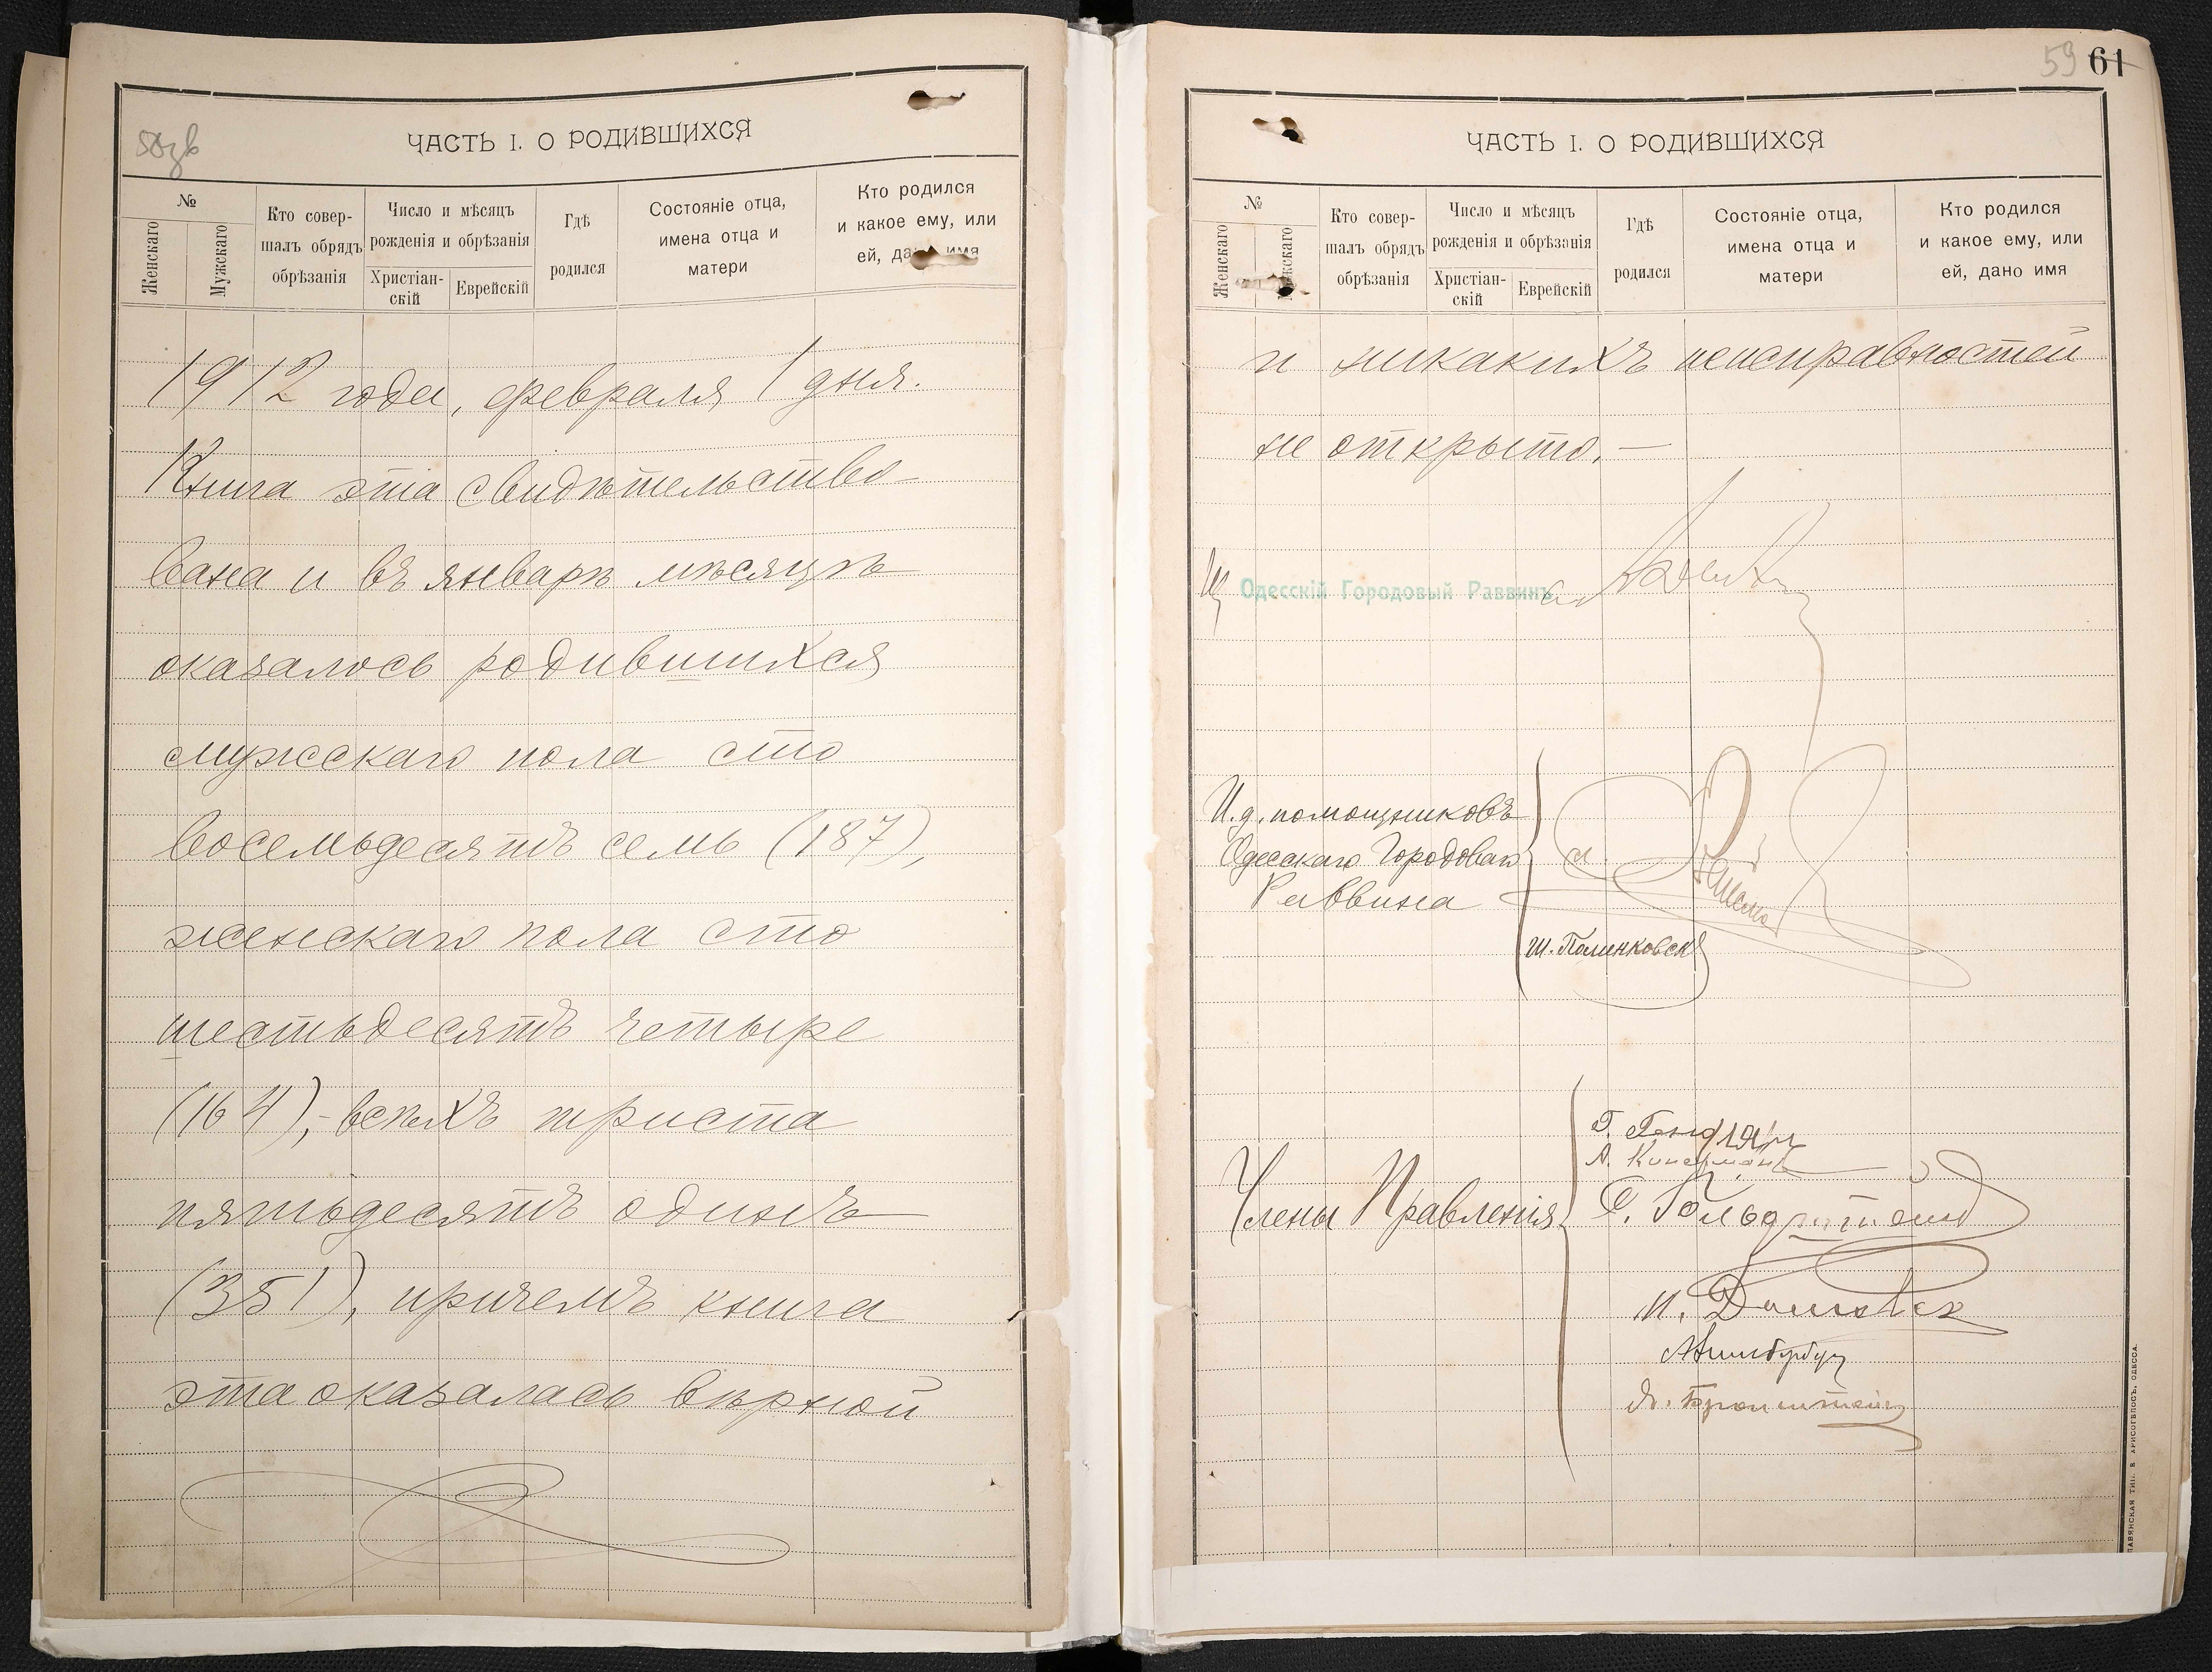 58зв
ЧАСТЬ I. О РОДИВШИХСЯ
№
Женскаго
Мужскаго
Кто совер-
шалъ обрядъ
обрѣзанія
Число и мѣсяцъ
рожденія и обрѣзанія
Христіан-
скій
Еврейскій
Гдѣ
родился
Состояніе отца,
имена отца и
матери
Кто родился
и какое ему, или
ей, дано имя
1912 года, февраля 1 дня.
Книга эта свидѣтельство-
вана и въ январѣ мѣсяцѣ
оказалось родившихся
мужскаго пола сто
восемьдесятъ семь (187),
женскаго пола сто
шестьдесятъ четыре
(164),- всѣхъ триста
пятьдесятъ одинъ
(351), причемъ книга
эта оказалась вѣрной
59 61
ЧАСТЬ I. О РОДИВШИХСЯ
№
Женскаго
Мужскаго
Кто совер-
шалъ обрядъ
обрѣзанія
Число и мѣсяцъ
рожденія и обрѣзанія
Христіан-
скій
Еврейскій
Гдѣ
родился
Состояніе отца,
имена отца и
матери
Кто родился
и какое ему, или
ей, дано имя
и никакихъ неисправностей
не открыто.—
Одесскій Городовый Раввинъ
И.д. помощниковъ
Одесскаго Городоваго
Раввина
Ш. Полинковск
Члены Правленія
С. Гольдштейн
Я. Бронштейн